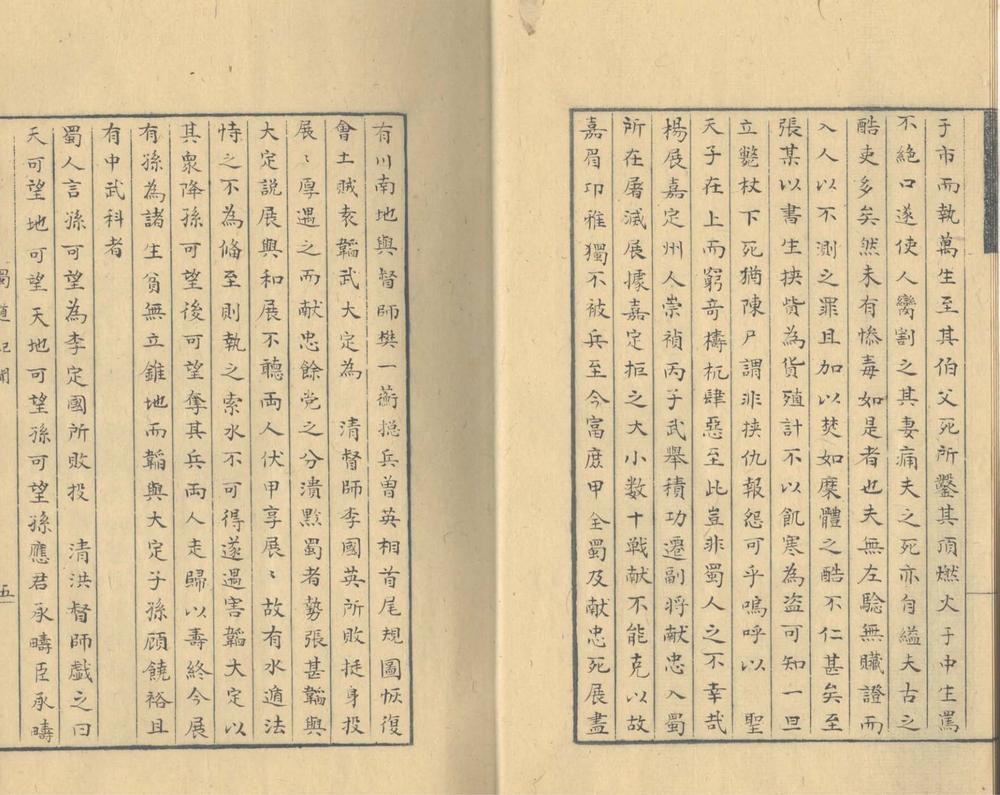 于市而執萬生至其伯父死所鑿其頂燃火于中生罵
不絕口遂使人臠割之其妻痛夫之死亦自縊夫古之
酷吏多矣然未有慘毒如是者也夫無左驗無贓證而
入人以不測之罪且加以焚如糜體之酷不仁甚矣至
張某以書生挾貲為貨殖計不以飢寒為盜可知一旦
立斃杖下死猶陳尸謂非挾仇報怨可乎嗚呼以　聖
天子在上而窮奇檮杌肆惡至此豈非蜀人之不幸哉
楊展嘉定州人崇禎丙子武舉積功遷副將献忠入蜀
所在屠滅展據嘉定拒之大小数十戰献不能克以故
嘉眉卬雅獨不被兵至今富庶甲　全蜀及献忠死展盡
有川南地與督師樊一蘅揔兵曾英相首尾規圖恢復
會土賊袁韜武大定為　清督師李國英所敗挺身投
展〻厚遇之而献忠餘党之分潰黔蜀者勢張甚韜與
大定説展與和展不聽両人伏甲享展〻故有水遁法
恃之不為偹至則執之索水不可得遂遇害韜大定以
其衆降孫可望後可望奪其兵両人走歸以壽終今展
有孫為諸生貧無立錐地而韜與大定子孫顧饒裕且
有中武科者
蜀人言孫可望為李定國所敗投　清洪督師戲之曰
天可望地可望天地可望孫可望孫應君承疇臣承疇
蜀道紀聞
五